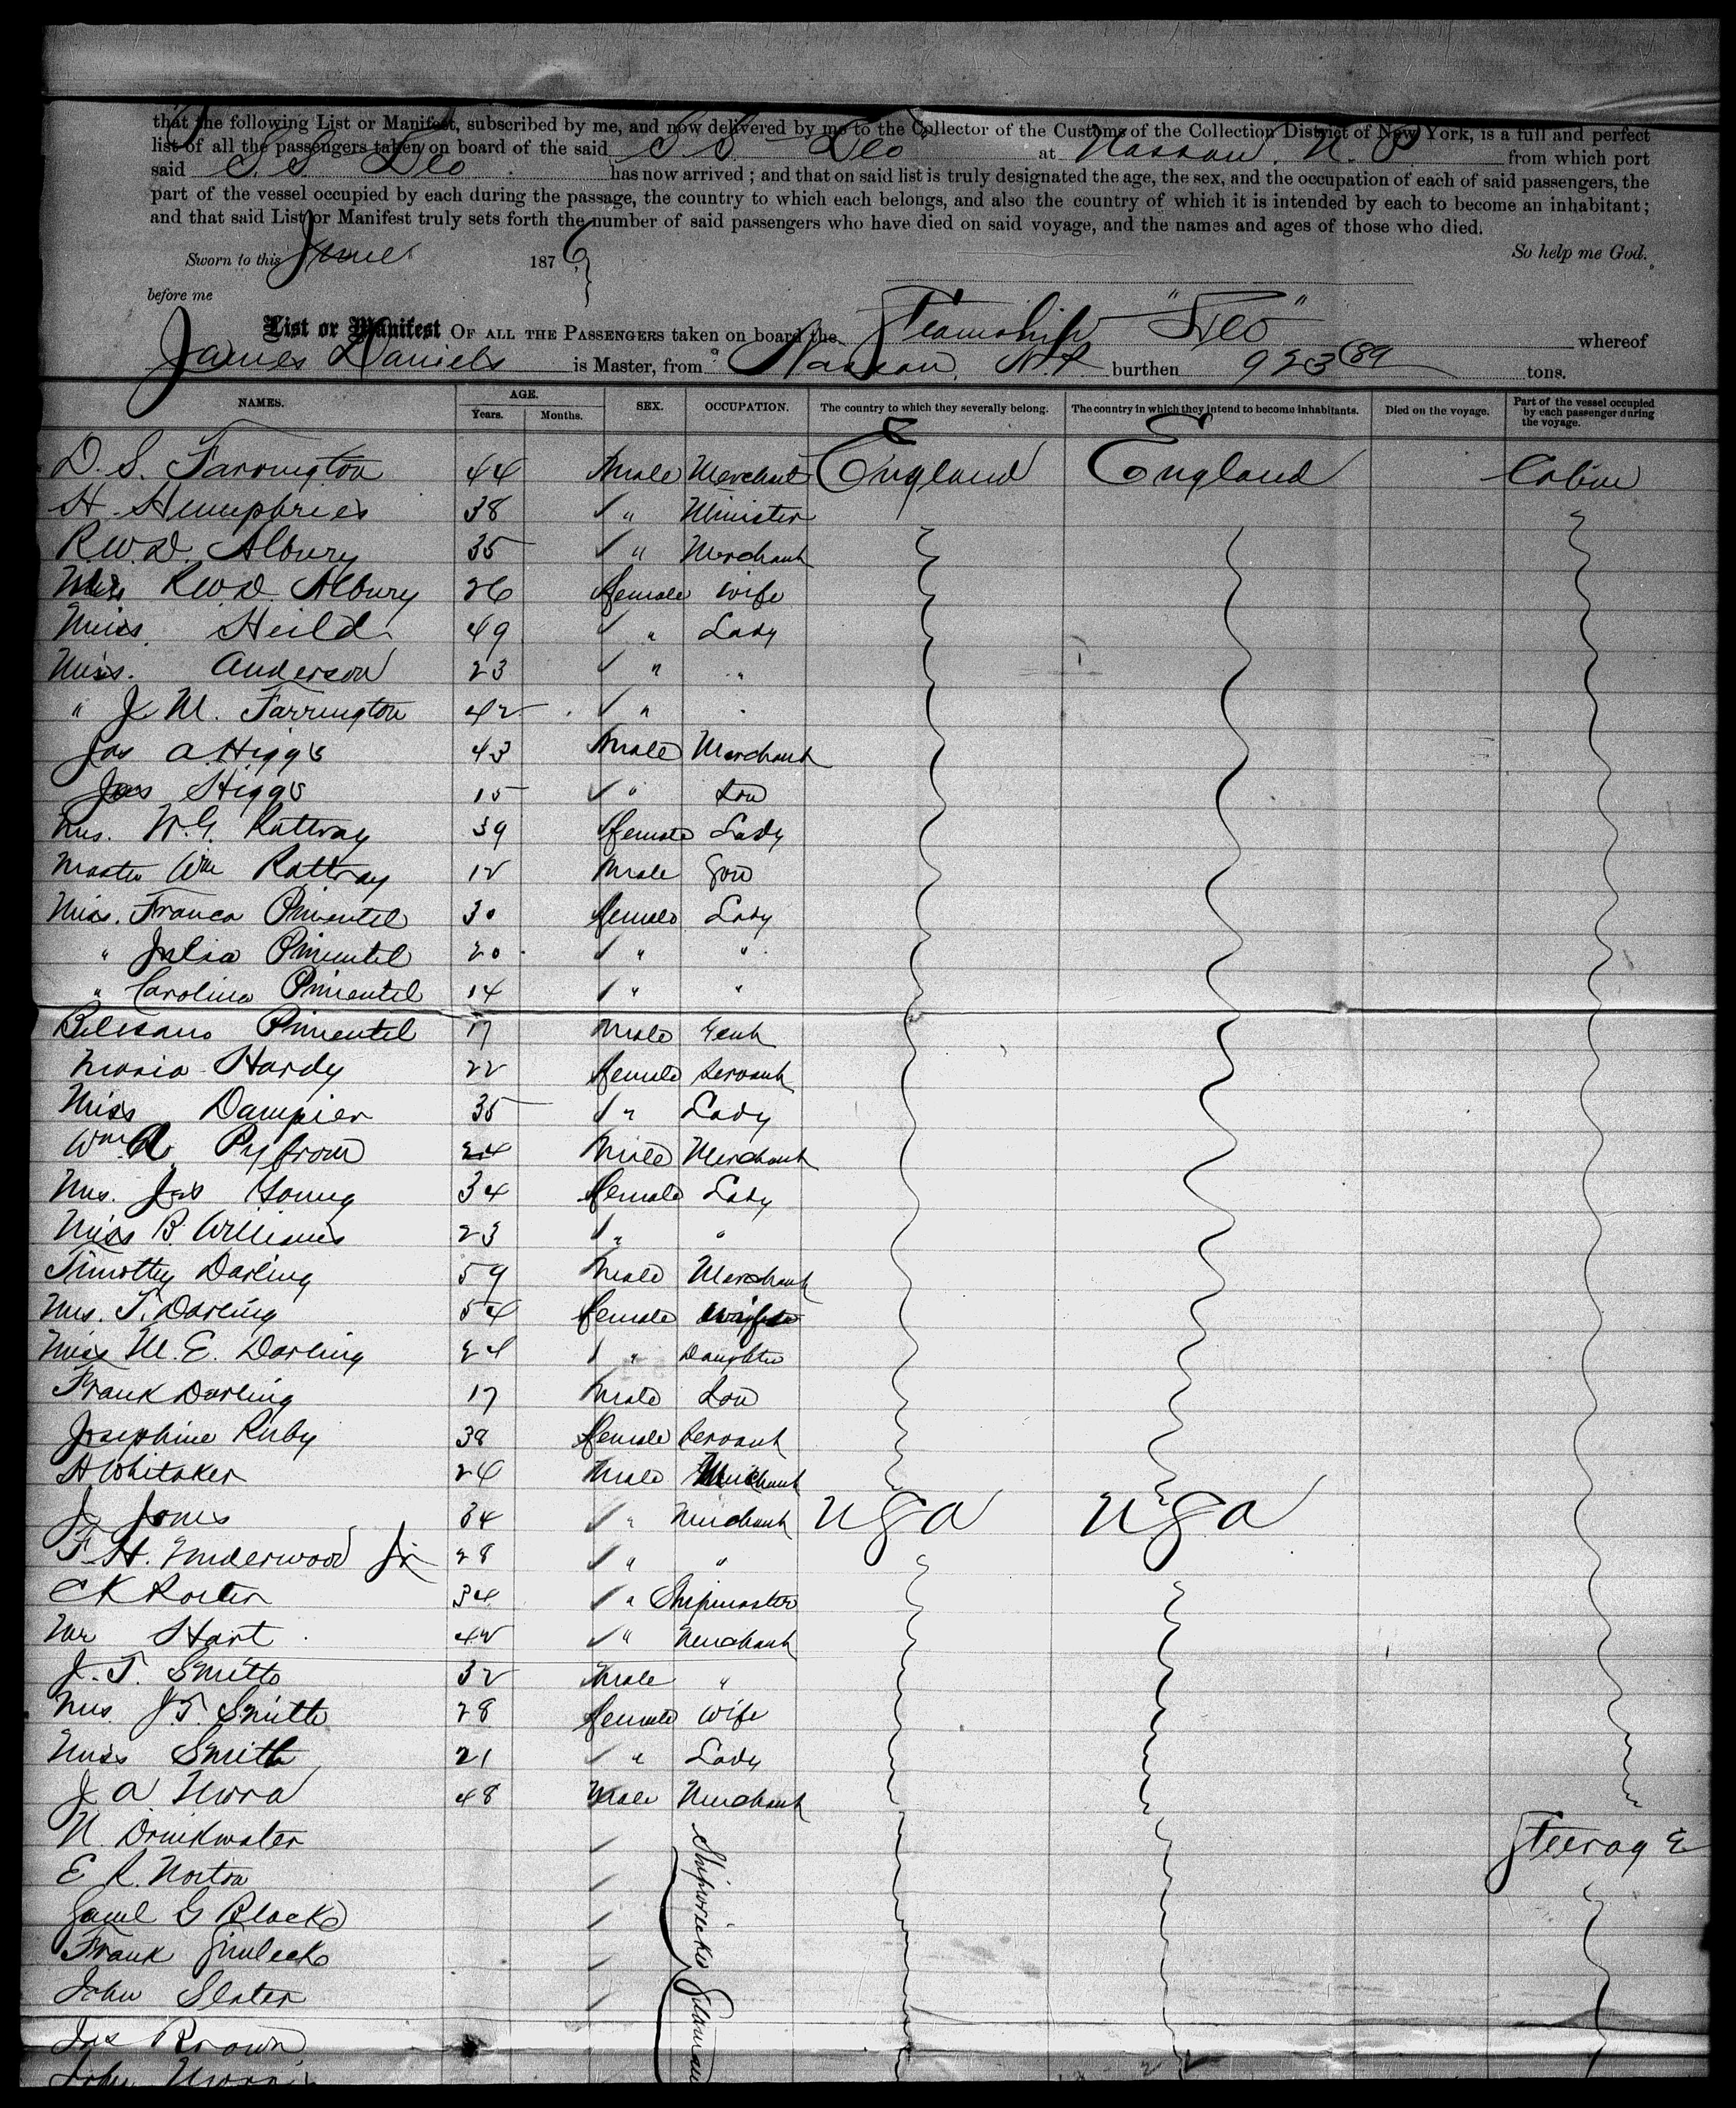 that the following List or Manifest, subscribed by me, and now delivered by me to the Collector of the Customs of the Collection District of New York, is a full and perfect
list of all the passengers taken on board of the said S.S. Leo at Nassau, N. P from which port
said S.S. Leo has now arrived; and that on said list is truly designated the age, the sex, and the occupation of each of said passengers, the
part of the vessel occupied by each during the passage, the country to which each belongs, and also the country of which it is intended by each to become an inhabitant;
and that said List or Manifest truly sets forth the number of said passengers who have died on said voyage, and the names and ages of those who died.
Sworn to this June 1876 So help me God.
before me
List or Manifest OF ALL THE PASSENGERS taken on board the Steamship "Leo" whereof
James Daniels is Master, from Nassau, N.P. burthen 923 89 tons.
NAMES. AGE. Years. Months. SEX. OCCUPATION. The country to which they severally belong. The country in which they intend to become inhabitants. Died on the voyage. Part of the vessel occupied by each passenger during the voyage.
D. S. Farrington 44 Male Merchant England England Cabin
H. Humphries 38 " Minister
R.W.D. Albury 35 " Merchant
Mrs R.W.D. Albury 26 female wife
Miss Heild 49 " Lady
Miss. Anderson 23 " "
" J. M. Farrington 42 " "
Jas A. Higgs 43 Male Merchant
Jas Higgs 15 " Son
Mrs. W.G. Rattray 39 female Lady
Master Wm Rattray 12 Male Son
Miss. Franca Pimentel 30 female Lady
" Julia Pimentel 20 " "
" Carolina Pimentel 14 " "
Pimentel 17 Male Gent
Maria Hardy 22 female Servant
Miss Dampier 35 " Lady
Wm R. Pyfrom 24 Male Merchant
Mrs. Jas Young 34 female Lady
Miss B. Williams 23 " "
Timothy Darling 59 Male Merchant
Mrs. T. Darling 54 female wife
Miss M. E. Darling 24 " Daughter
Frank Darling 17 Male Son
Josephine Ruby 38 female Servant
H Whitaker 24 Male Merchant
J Jones 34 " Merchant USA USA
F. H. Underwood Jr 28 " "
C K Porter 34 " Shipmaster
Mr Hart 42 " Merchant
J. T. Smith 32 Male "
Mrs. J.T. Smith 28 female Wife
Miss Smith 21 " Lady
J A Mora 48 Male Merchant
N. Drinkwater Steerage
E R. Norton
Saml G Black
Frank
John Slater
Jas Brown
John
Shipwrecked Seaman